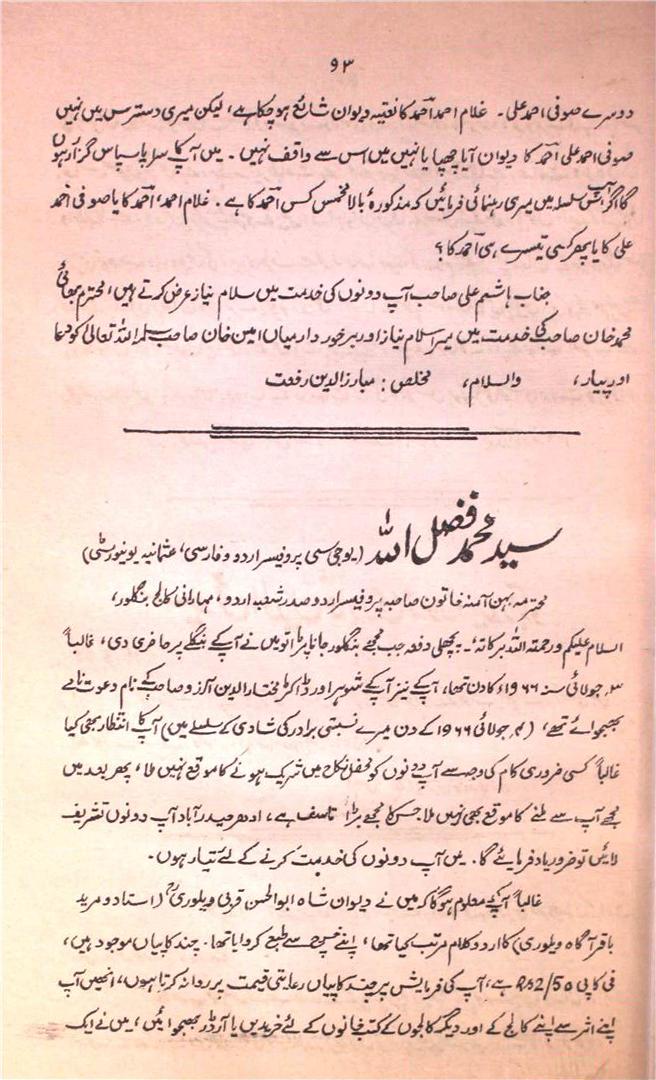 ۹۳
دوسرے صوفی احمد علی۔ غلام احمد احمد کا نعتیہ دیوان شائع ہو چکا ہے، لیکن میری دسترس میں نہیں
صوفی احمد علی احمد کا دیوان آیا چھپا یا نہیں میں اس سے واقف نہیں۔ میں آپ کا سراپا سپاس گزار ہوں
گا اگر آپ اس سلسلہ میں میری رہنمائی فرمائیں کہ مذکورۂ بالا مخمس کس احمد کا ہے۔ غلام احمد، احمد کا یا صوفی احمد
علی کا یا پھر کسی تیسرے ہی احمد کا؟
جناب ہاشم علی صاحب آپ دونوں کی خدمت میں سلام نیاز عرض کرتے ہیں، محترم بھائی
محمد خان صاحب کی خدمت میں میرا سلام نیاز اور برخوردار میاں امین خان صاحب سلمہ اللہ تعالیٰ کو دعا
اور پیار، والسلام، مخلص: مبارز الدین رفعت
سید محمد فضل اللہ (یو جی سی پروفیسر اردو و فارسی، عثمانیہ یونیورسٹی)
محترمہ بہن آمنہ خاتون صاحبہ پروفیسر اردو صدر شعبہ اردو، مہارانی کالج بنگلور،
السلام علیکم ورحمتہ اللہ برکاتہٗ۔ پچھلی دفعہ جب مجھے بنگلور جانا پڑا تو میں نے آپ کے بنگلے پر حاضری دی، غالباً
۳؍ جولائی سنہ ۱۹۶۶ء کا دن تھا، آپ کے نیز آپ کے شوہر اور ڈاکٹر مختار الدین آرزو صاحب کے نام دعوت نامے
بھجوائے تھے، (۴؍ جولائی ۱۹۶۶ء کے دن میرے نسبتی برادر کی شادی کے سلسلے میں) آپ کا انتظار بھی کیا
غالباً کسی ضروری کام کی وجہ سے آپ دونوں کو محفل نکاح میں شریک ہونے کا موقع نہیں ملا، پھر بعد میں
مجھے آپ سے ملنے کا موقع بھی نہیں ملا جس کا مجھے بڑا تاسف ہے، ادھر حیدرآباد آپ دونوں تشریف
لائیں تو ضرور یاد فرمایئے گا۔ میں آپ دونوں کی خدمت کرنے کے لئے تیار ہوں۔
غالباً آپ کو معلوم ہوگا کہ میں نے دیوان شاہ ابوالحسن قربی ویلوری (استاد و مرید
باقر آگاہ ویلوری) کا اردو کلام مرتب کیا تھا، اپنے خرچ سے طبع کروایا تھا۔ چند کاپیاں موجود ہیں،
فی کاپی Rs2/50 ہے، آپ کی فرمایش پر چند کاپیاں رعایتی قیمت پر روانہ کرتا ہوں، انھیں آپ
اپنے اثر سے اپنے کالج کے اور دیگر کالجوں کے کتب خانوں کے لئے خریدیں یا آرڈر بھجوائیں، میں نے ایک